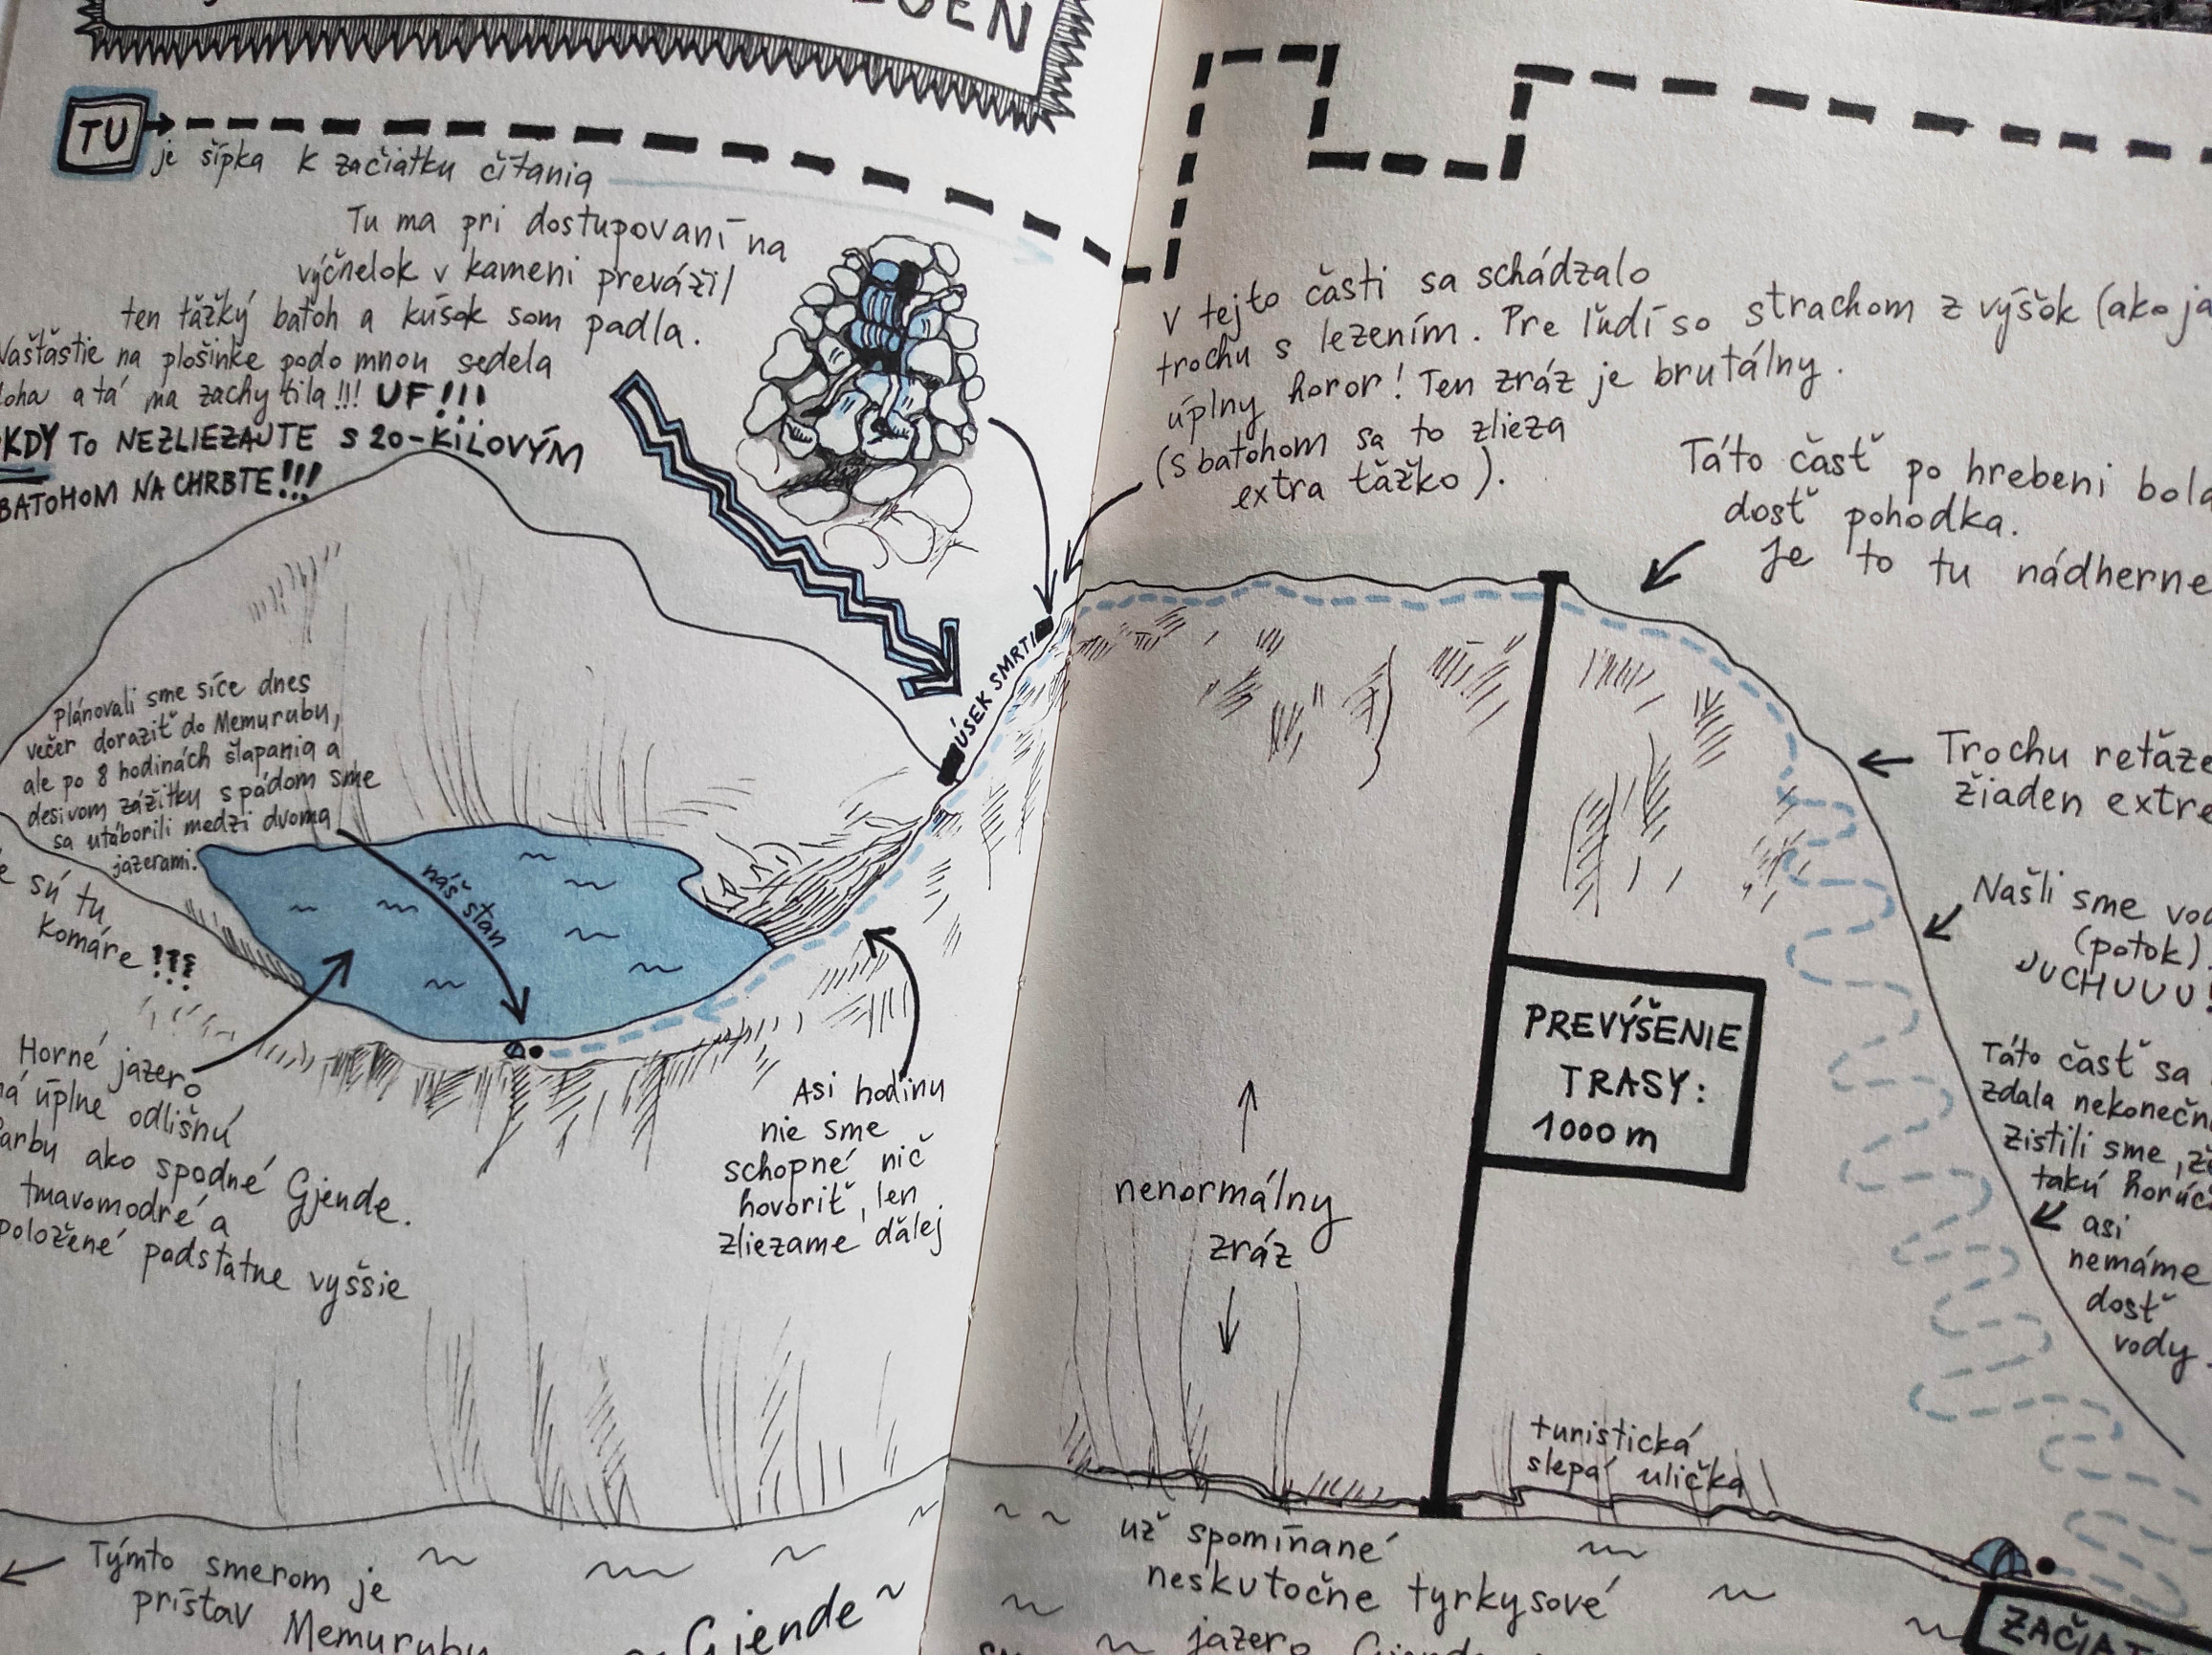 TU
je šípka k začiatku čítania
Tu ma pri dostupovaní na
výčnelok v kameni prevážil
ten ťažký batoh a kúsok som padla.
Našťastie na plošinke podo mnou sedela
a tá ma zachytila!!! UF!!!
TO NEZLIEZAJTE S 20-KILOVÝM
BATOHOM NA CHRBTE!!!
ÚSEK SMRTI
Plánovali sme síce dnes
večer doraziť do Memurubu,
ale po 8 hodinách šlapania a
desivom zážitku s pádom sme
sa utáborili medzi dvoma
jazerami.
náš stan
sú tu
komáre !!!
Horné jazero
úplne odlišnú
ako spodné Gjende.
tmavomodré a
položené podstatne vyššie
Asi hodinu
nie sme
schopné nič
hovoriť, len
zliezame ďalej
Týmto smerom je
prístav Memurubu
~ Gjende ~
V tejto časti sa schádzalo
trochu s lezením. Pre ľudí so strachom z výšok (ako ja
úplny horor! Ten zráz je brutálny.
(S batohom sa to zlieza
extra ťažko).
Táto časť po hrebeni bola
dosť pohodka.
Je to tu nádherne
Trochu
žiaden
Našli sme
(potok).
JUCHUUU!
Táto časť sa
zdala
zistili sme,
takú
asi
nemáme
dosť
vody.
PREVÝŠENIE
TRASY:
1000 m
nenormálny
zráz
turistická
slepá ulička
už spomínané
neskutočne tyrkysové
jazero Gjende